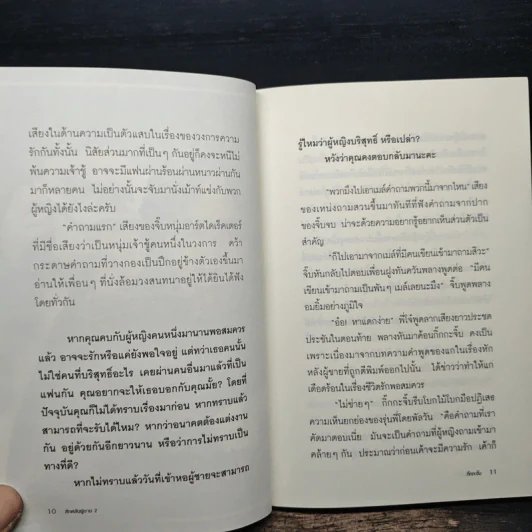 เสียงในด้านความเป็นตัวแสบในเรื่องของวงการความ
รักกันทั้งนั้น นิสัยส่วนมากที่เป็นๆ กันอยู่ก็คงจะหนีไม่
พ้นความเจ้าชู้ อาจจะมีแฟนผ่านร้อนผ่านหนาวผ่านกัน
มาก็หลายคน ไม่อย่างนั้นจะจับมานั่งเม้าท์แข่งกับพวก
ผู้หญิงได้ยังไงล่ะครับ
"คำถามแรก" เสียงของจิ๊บหนุ่มอาร์ตไดเร็คเตอร์
ที่มีชื่อเสียงว่าเป็นหนุ่มเจ้าชู้คนหนึ่งในวงการ คว้า
กระดาษคำถามที่วางกองเป็นปึกอยู่ข้างตัวเองขึ้นมา
อ่านให้เพื่อนๆ ที่นั่งล้อมวงสนทนาอยู่ให้ได้ยินได้ฟัง
โดยทั่วกัน
หากคุณคบกับผู้หญิงคนหนึ่งมานานพอสมควร
แล้ว อาจจะรักหรือแค่ยังพอใจอยู่ แต่ทว่าเธอคนนั้น
ไม่ใช่คนที่บริสุทธิ์อะไร เคยผ่านคนอื่นมาแล้วที่เป็น
แฟนกัน คุณอยากจะให้เธอบอกกับคุณมั้ย? โดยที่
ปัจจุบันคุณก็ไม่ได้ทราบเรื่องมาก่อน หากทราบแล้ว
สามารถที่จะรับได้ไหม? หากว่าอนาคตต้องแต่งงาน
กัน อยู่ด้วยกันอีกยาวนาน หรือว่าการไม่ทราบเป็น
ทางที่ดี?
หากไม่ทราบแล้ววันที่เข้าหอผู้ชายจะสามารถ
10
รู้ไหมว่าผู้หญิงบริสุทธิ์ หรือเปล่า?
หวังว่าคุณคงตอบกลับมานะคะ
"พวกมึงไปเอาเมล์คำถามพวกนี้มาจากไหน" เสียง
ของเหน่งถามสวนขึ้นมาทันทีที่ฟังคำถามจากปาก
ของจิ๊บจบ น่าจะด้วยความอยากรู้อยากเห็นส่วนตัวเป็น
สำคัญ
"ก็ไปเอามาจากเมล์ที่มีคนเขียนเข้ามาถามสิวะ"
จิ๊บหันกลับไปตอบเพื่อนฝูงทันควันพลางพูดต่อ "มีคน
เขียนเข้ามาถามเป็นพันๆ เมล์เลยนะมึง" จิ๊บพูดพลาง
อมยิ้มอย่างภูมิใจ
"อ้อ! หาแดกง่าย" พี่โจ้พูดลากเสียงยาวประชด
ประชันในตอนท้าย พลางหันมาค้อนกิ๊กกะจิ๊บ คงเป็น
เพราะเนื่องมาจากบทความคำพูดของแกในเรื่องหัก
หลังผู้ชายที่ถูกตีพิมพ์ออกไปนั้น ได้ข่าวว่าทำให้แก
เดือดร้อนในเรื่องชีวิตรักพอสมควร
"ไม่ช่ายๆ" กิ๊กกะจิ๊บรีบโบกไม้โบกมือปฏิเสธ
ความเห็นยกย่องของรุ่นพี่โดยพัลวัน "คือคำถามที่เรา
คัดมาตอบเนี่ย มันจะเป็นคำถามที่ผู้หญิงถามเข้ามา
คล้ายๆ กัน ประมาณว่าก่อนเค้าจะมีความรัก เค้าก็
11